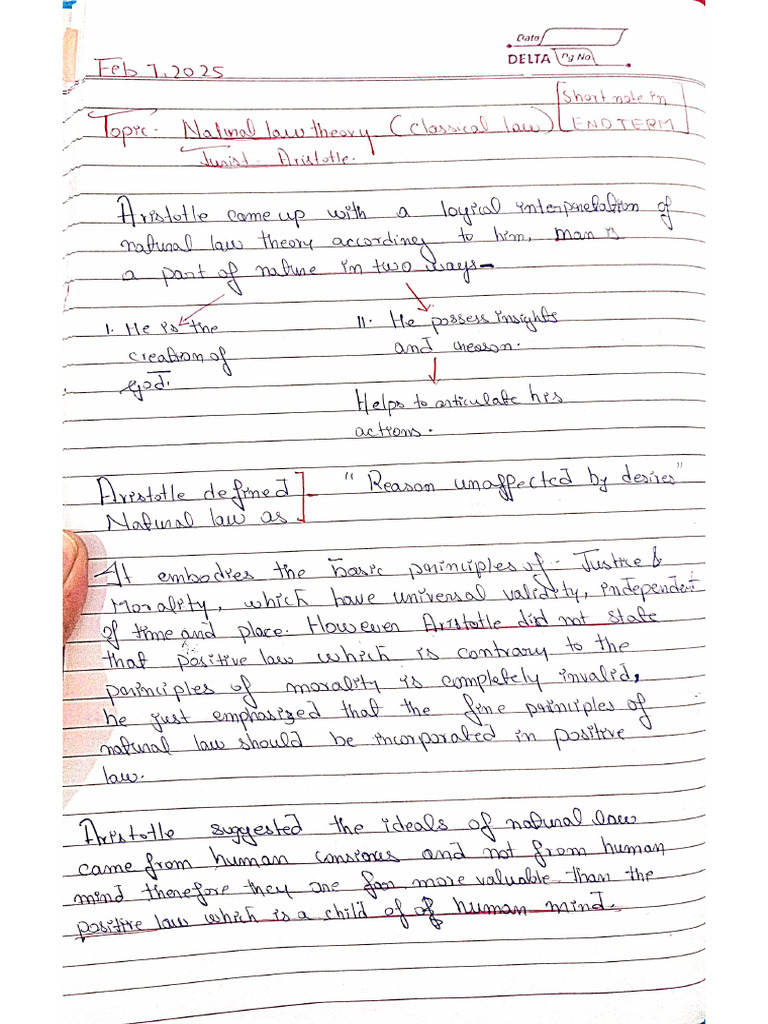 Date
DELTA Pg No
Feb 7, 2025
Short note in
END TERM
Topic- Natural law theory (Classical law)
Jurist- Aristotle.
Aristotle came up with a logical interpretation of
natural law theory according to him, man is
a part of nature in two ways-
I. He is the
creation of
god.
II. He possess insights
and reason.
Helps to articulate his
actions.
Aristotle defined - "Reason unaffected by desires"
Natural law as
It embodies the basic principles of Justice &
Morality, which have universal validity, independent
of time and place. However Aristotle did not state
that positive law which is contrary to the
principles of morality is completely invalid,
he just emphasized that the fine principles of
natural law should be incorporated in positive
law.
Aristotle suggested the ideals of natural law
came from human consious and not from human
mind therefore they are far more valuable than the
positive law which is a child of of human mind.